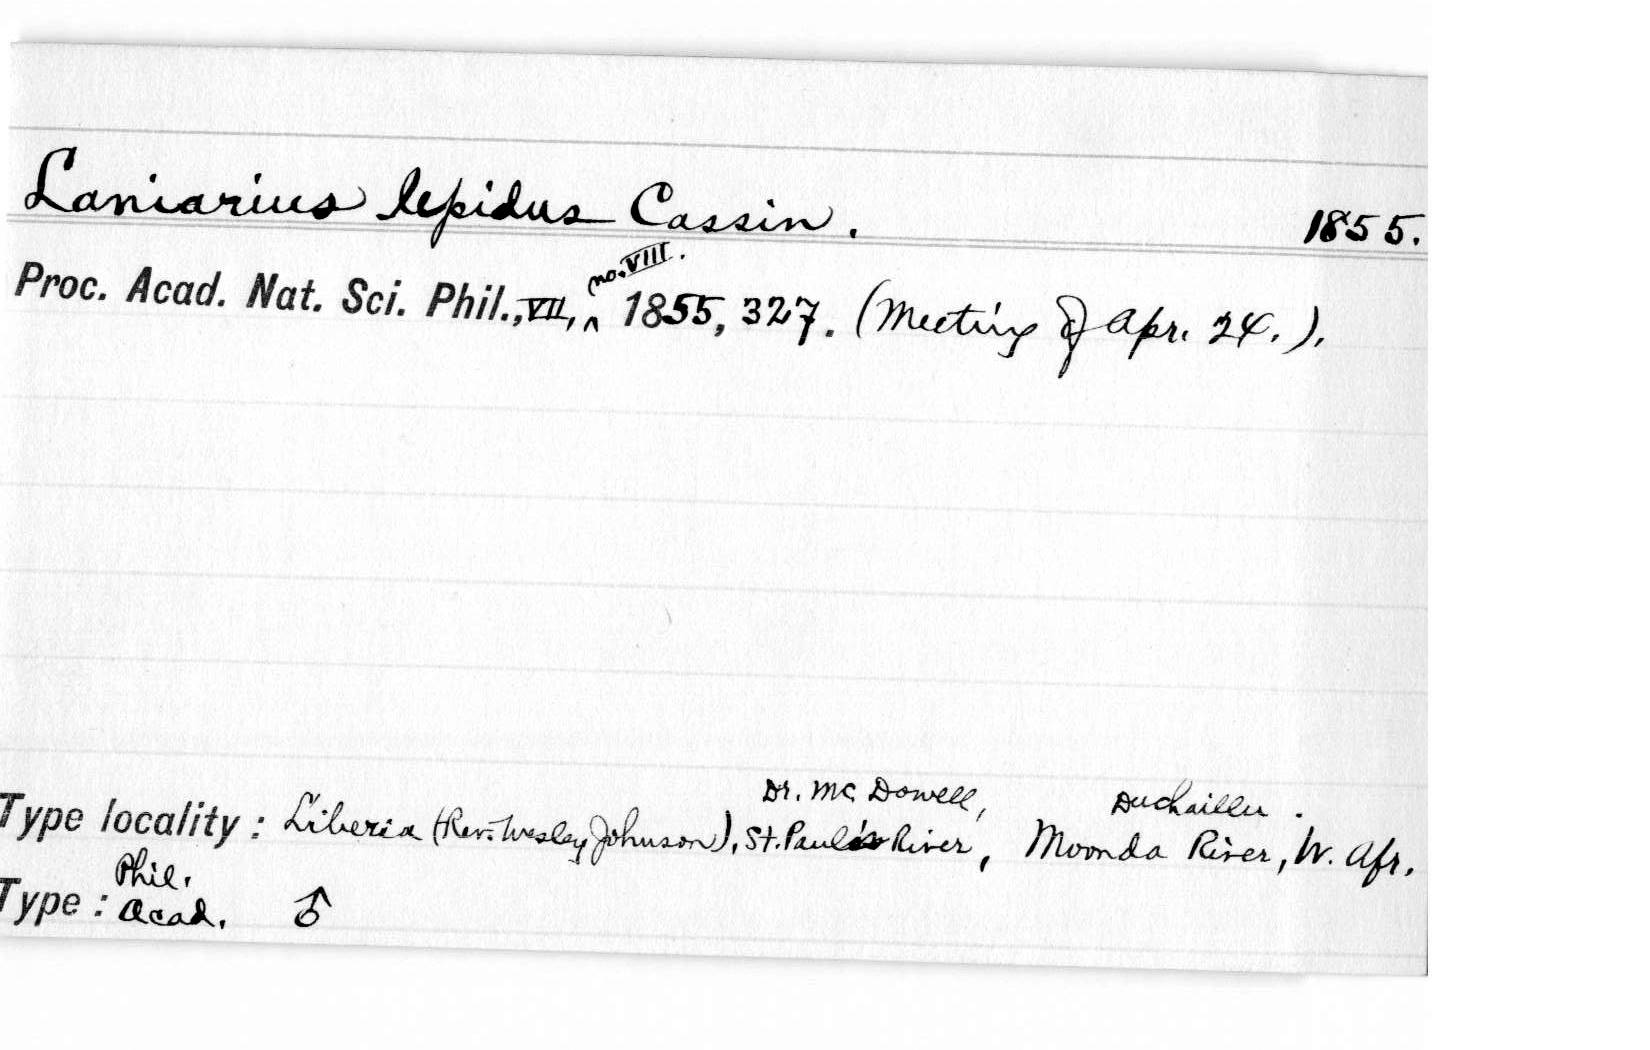 Laniarius lepidus Cassin. 1855.
no. VIII.
Proc. Acad. Nat. Sci. Phil., VII, ^ 1855, 327. (Meeting of Apr. 24.).
Dr. Mc Dowell, Duchaillu.
Type locality: Liberia (Rev. Wesley Johnson), St. Paul's River, Moonda River, W. Afr.
Phil.
Type: Acad. ♂